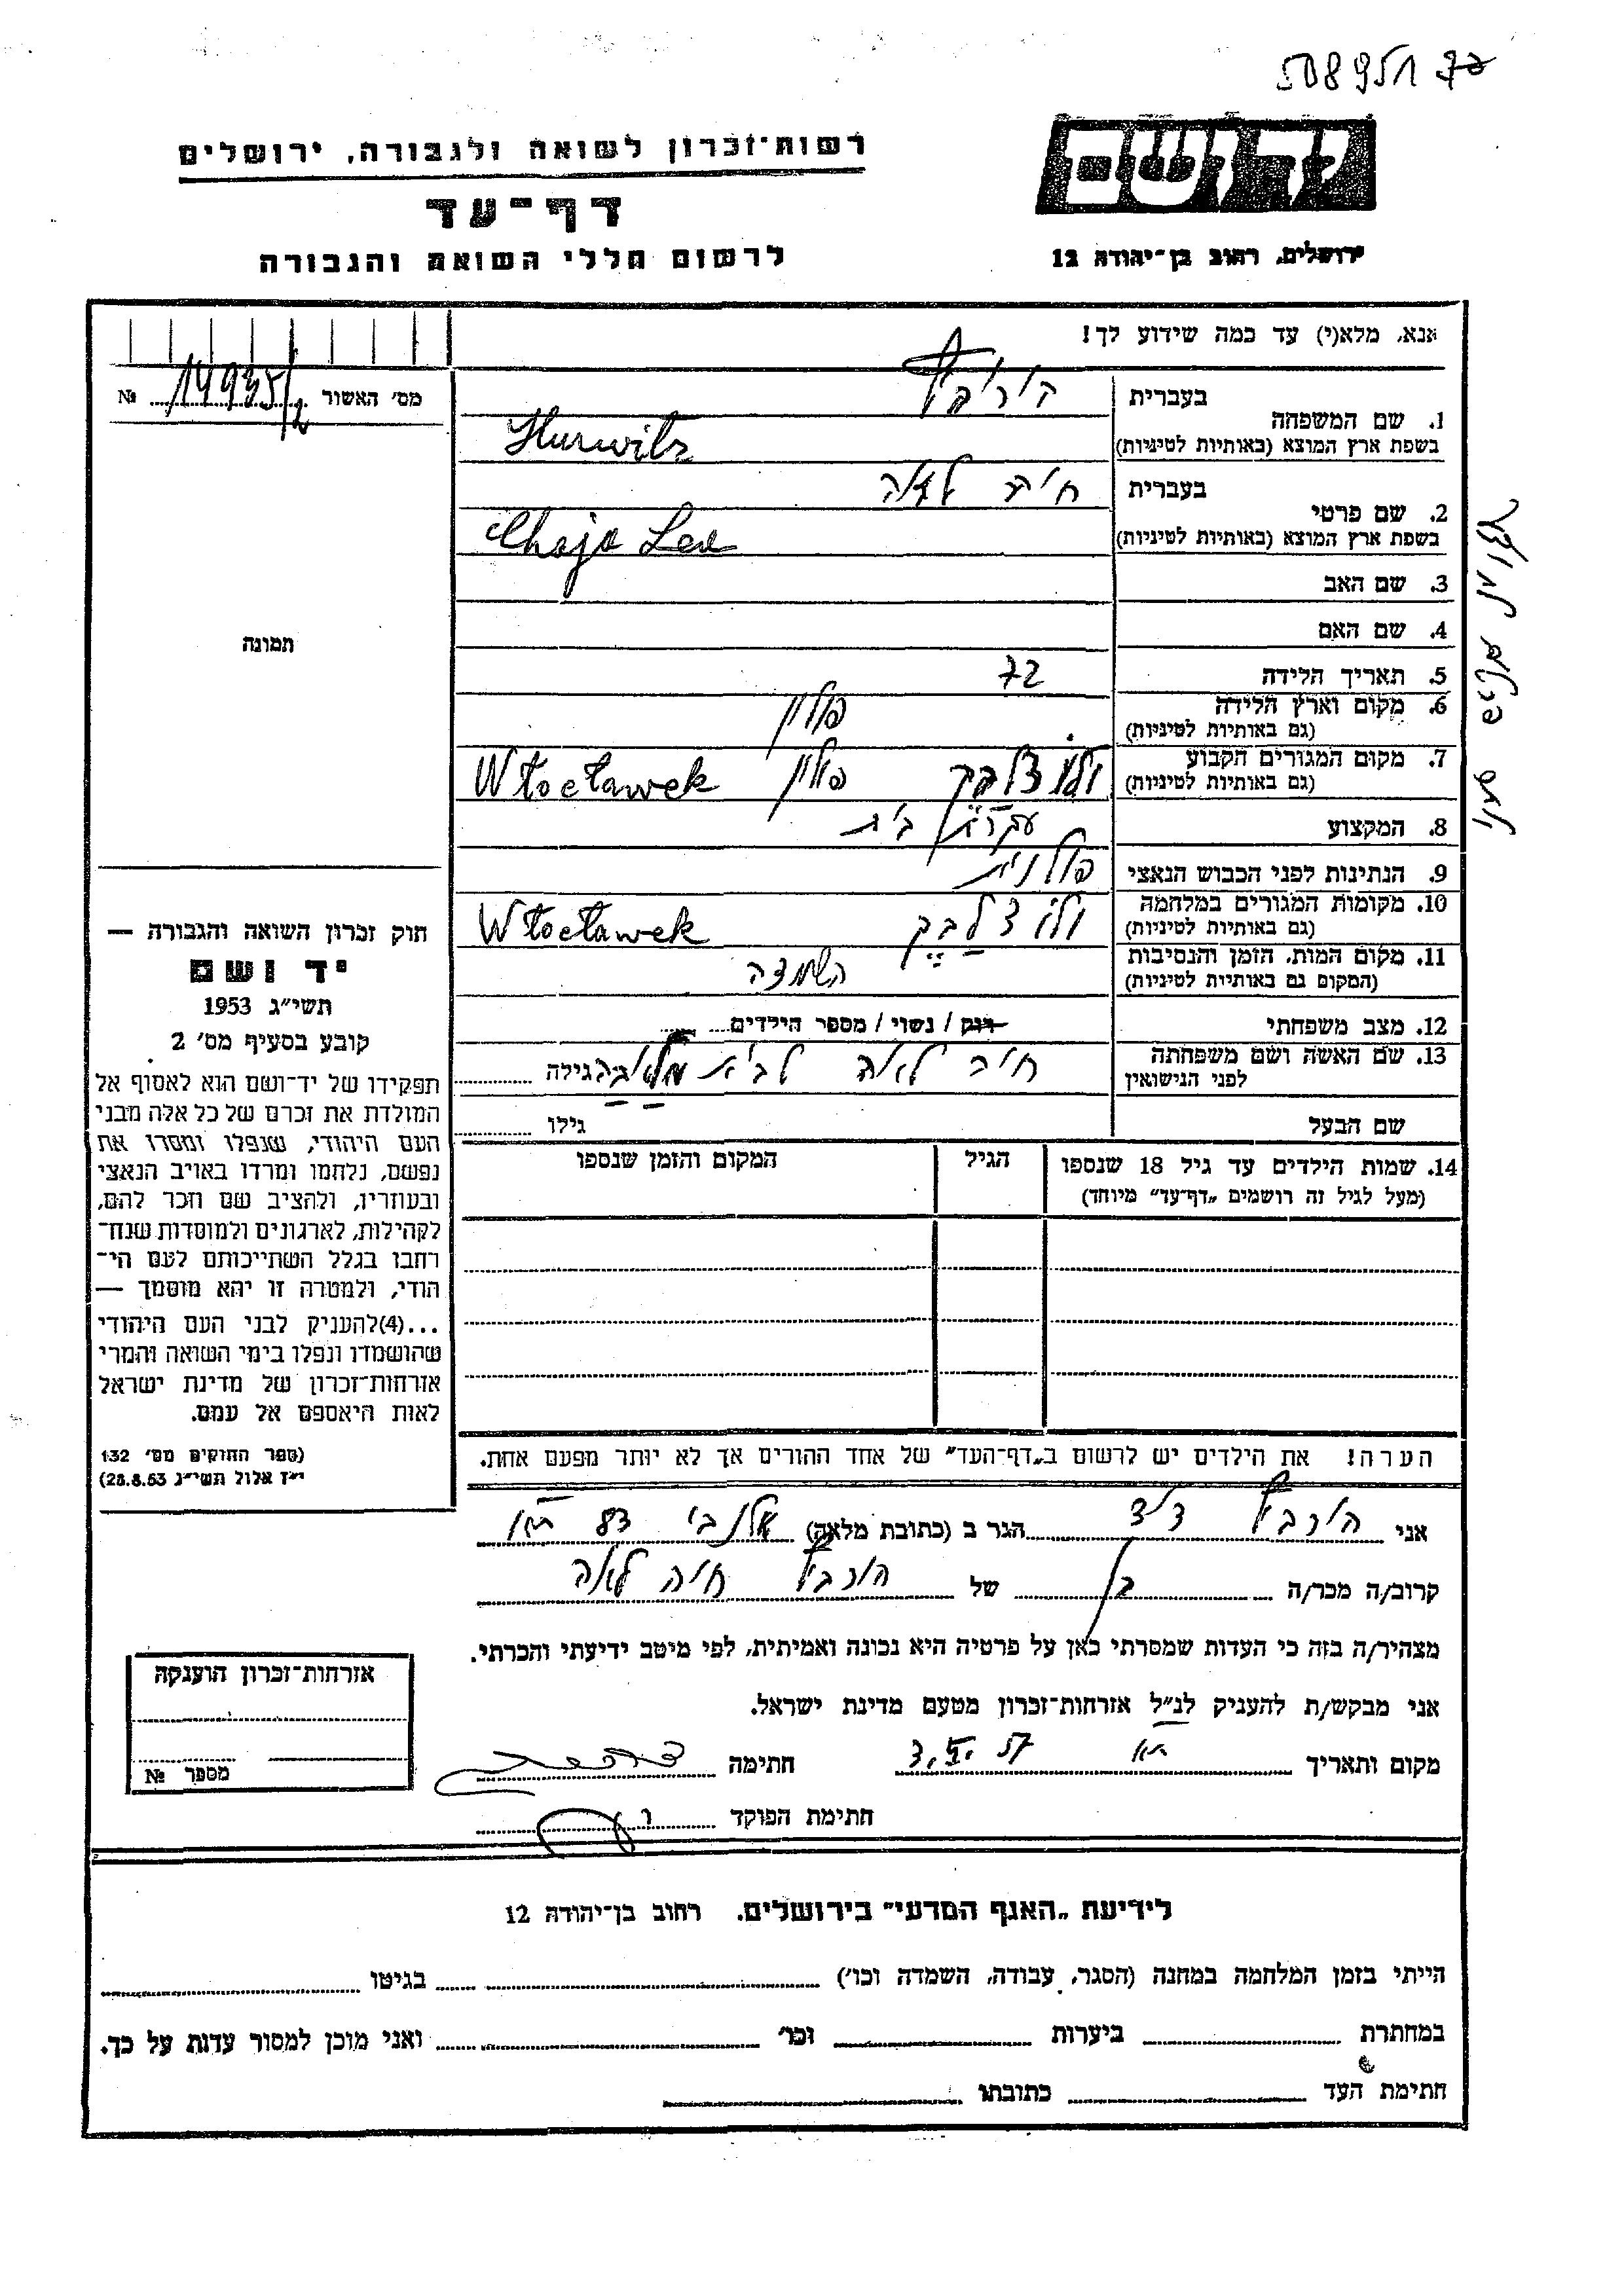 508951 72
רשות־זכרון לשואה ולגבורה, ירושלים
יד ושם
דף־עד
לרשום חללי השואה והגבורה
ירושלים, רחוב בן־יהודה 12
אנא, מלא(י) עד כמה שידוע לך!
מס' האשור 14935/2 №
1. שם המשפחה
בעברית הורביץ
בשפת ארץ המוצא (באותיות לטיניות) Hurwitz
2. שם פרטי
בעברית חיה לאה
בשפת ארץ המוצא (באותיות לטיניות) Chaja Lea
3. שם האב
4. שם האם
תמונה
5. תאריך הלידה 72
6. מקום וארץ הלידה פולין
(גם באותיות לטיניות)
7. מקום המגורים הקבוע ולוצלבק פולין Włocławek
(גם באותיות לטיניות)
8. המקצוע עקרת בית
9. הנתינות לפני הכבוש הנאצי פולנית
10. מקומות המגורים במלחמה ולוצלבק Włocławek
(גם באותיות לטיניות)
11. מקום המות, הזמן והנסיבות השמדה
(המקום גם באותיות לטיניות)
12. מצב משפחתי רווק / נשוי / מספר הילדים
13. שם האשה ושם משפחתה חיה לאה לבית גילה
לפני הנישואין
שם הבעל גילו
14. שמות הילדים עד גיל 18 שנספו הגיל המקום והזמן שנספו
(מעל לגיל זה רושמים „דף־עד" מיוחד)
חוק זכרון השואה והגבורה —
יד ושם
תשי"ג 1953
קובע בסעיף מס' 2
תפקידו של יד־ושם הוא לאסוף אל
המולדת את זכרם של כל אלה מבני
העם היהודי, שנפלו ומסרו את
נפשם, נלחמו ומרדו באויב הנאצי
ובעוזריו, ולהציב שם וזכר להם,
לקהילות, לארגונים ולמוסדות שנח־
רחבו בגלל השתייכותם לעם הי־
הודי, ולמטרה זו יהא מוסמך —
...(4)להעניק לבני העם היהודי
שהושמדו ונפלו בימי השואה והמרי
אזרחות־זכרון של מדינת ישראל
לאות היאספם אל עמם.
(ספר החוקים מס' 132
י"ז אלול תשי"ג 28.8.53)
הערה! את הילדים יש לרשום ב„דף־העד" של אחד ההורים אך לא יותר מפעם אחת.
אני הורביץ דוד הגר ב (כתובת מלאה) אלנבי 83 ת"א
קרוב/ה מכר/ה בן של הורביץ חיה לאה
מצהיר/ה בזה כי העדות שמסרתי כאן על פרטיה היא נכונה ואמיתית, לפי מיטב ידיעתי והכרתי.
אני מבקש/ת להעניק לנ"ל אזרחות־זכרון מטעם מדינת ישראל.
מקום ותאריך ת"א חתימה
חתימת הפוקד
אזרחות־זכרון הוענקה
מספר №
לידיעת „האגף המדעי" בירושלים. רחוב בן־יהודה 12
הייתי בזמן המלחמה במחנה (הסגר, עבודה, השמדה וכו') בגיטו
במחתרת ביערות וכו' ואני מוכן למסור עדות על כך.
חתימת העד כתובתו